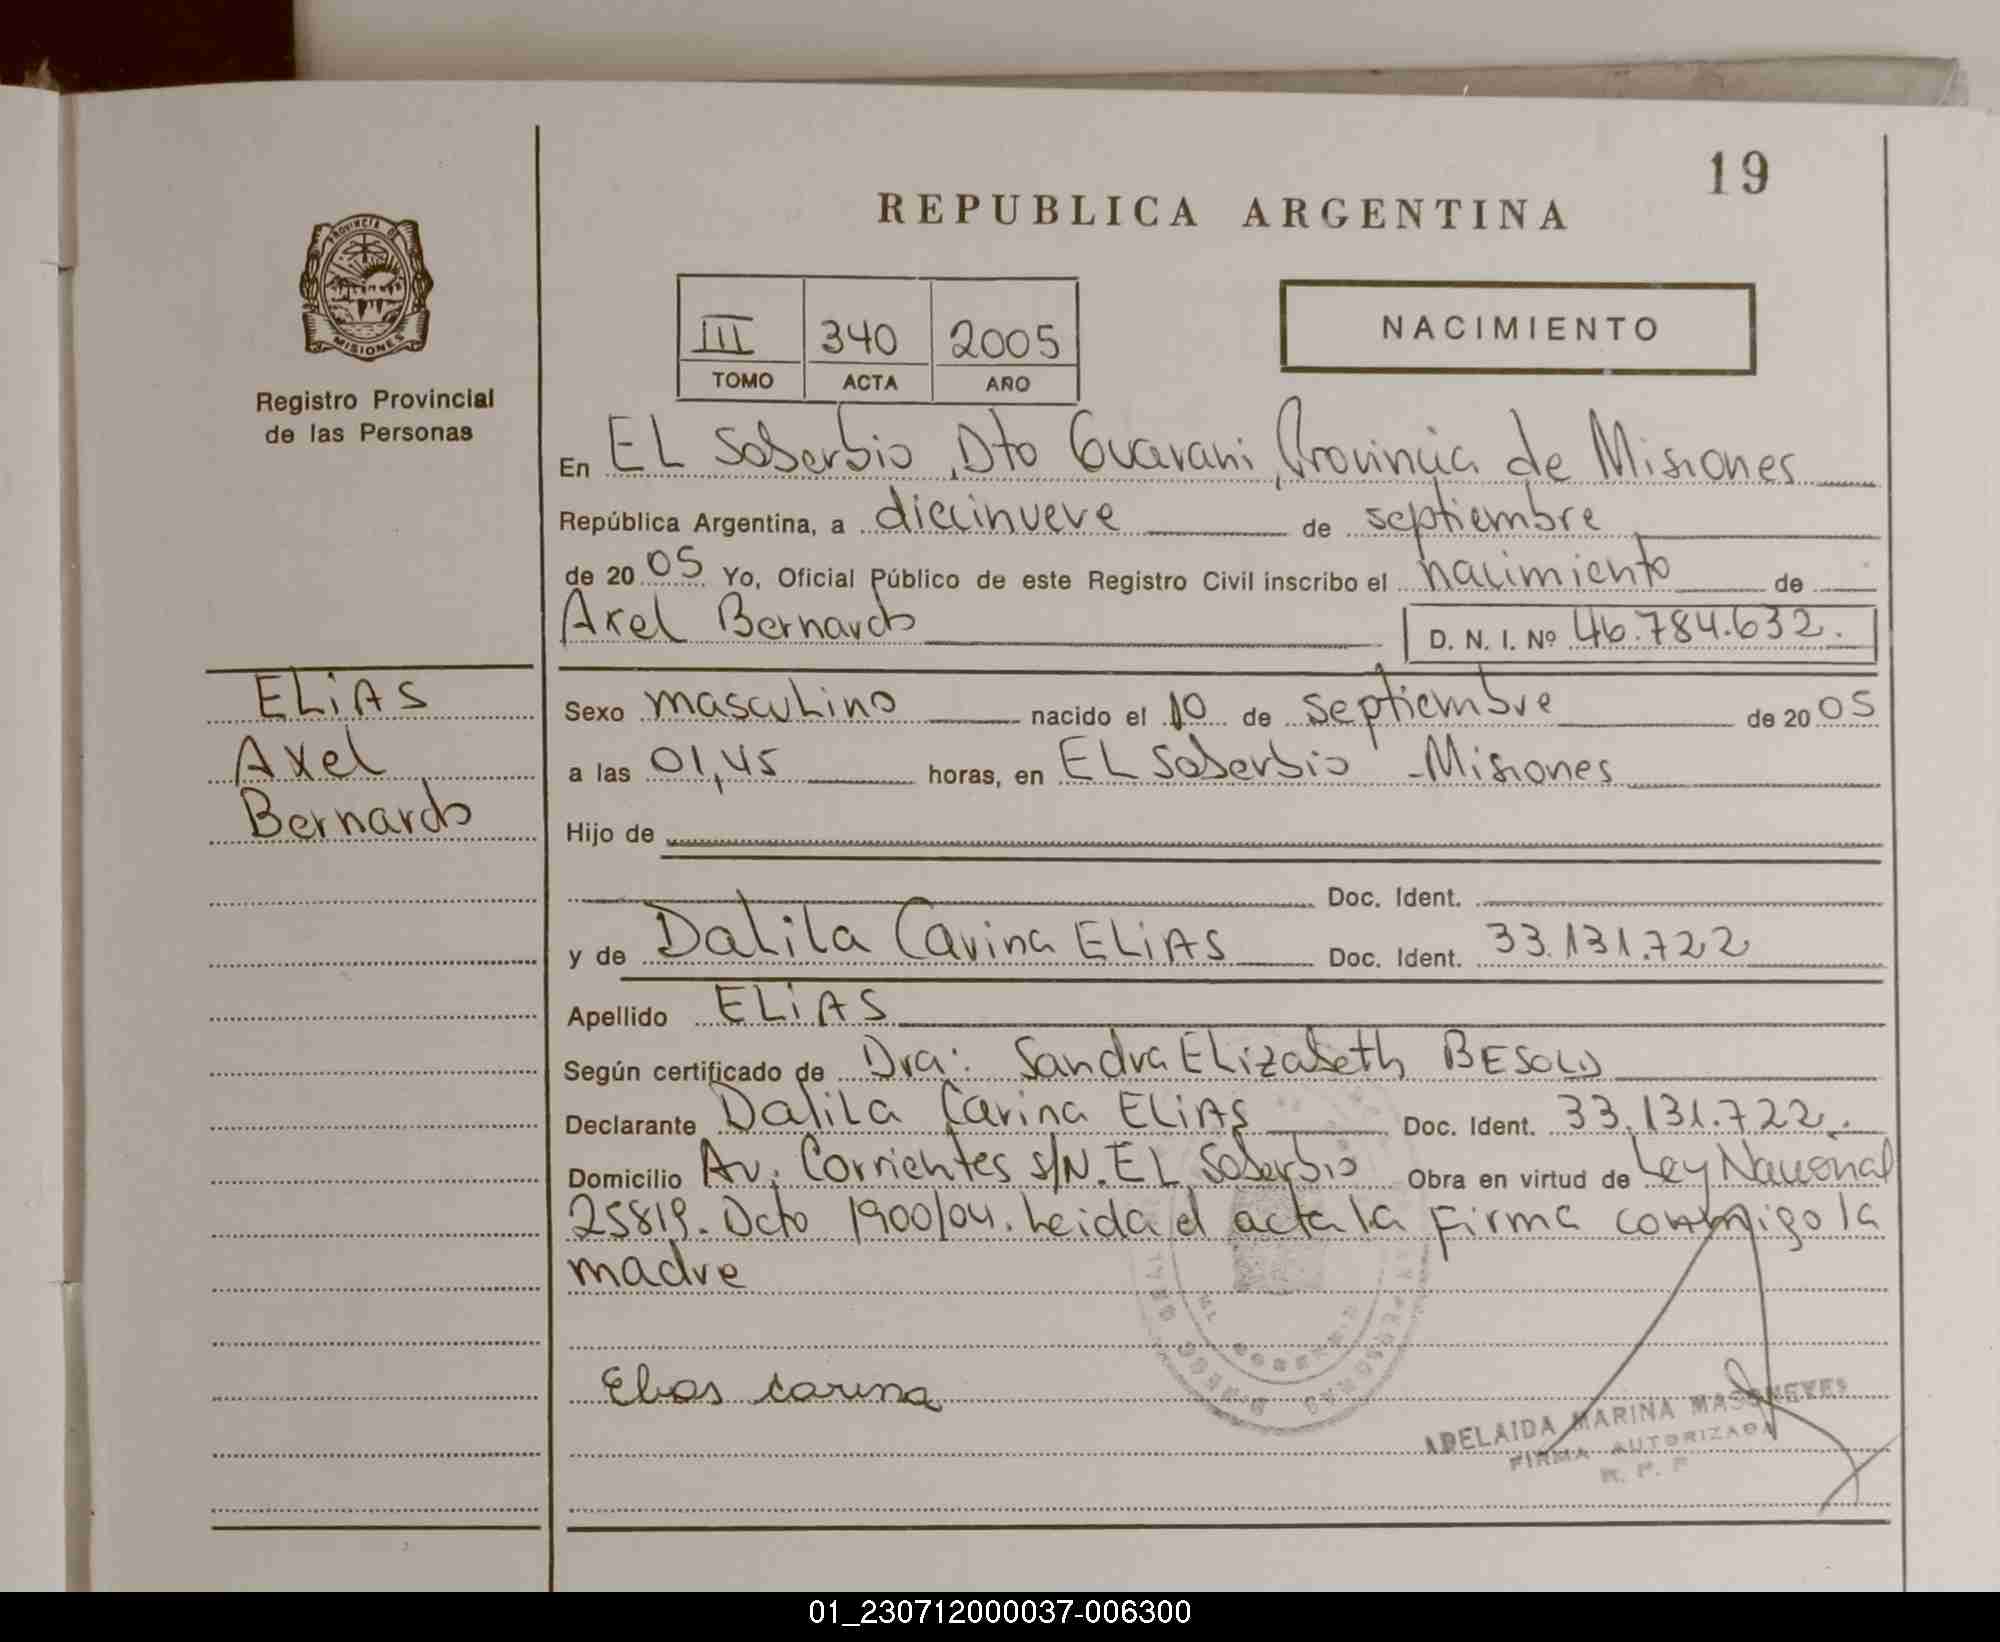 19
REPUBLICA ARGENTINA
PROVINCIA DE
MISIONES
Registro Provincial
de las Personas
III 340 2005
TOMO ACTA AÑO
NACIMIENTO
En EL Soberbio, Dto Guarani, Provincia de Misiones
República Argentina, a diecinueve de septiembre
de 2005 Yo, Oficial Público de este Registro Civil inscribo el nacimiento de
Axel Bernardo D. N. I. Nº 46.784.632.
ELIAS
Axel
Bernardo
Sexo masculino nacido el 10 de septiembre de 2005
a las 01,45 horas, en EL Soberbio - Misiones
Hijo de
Doc. Ident.
y de Dalila Carina ELIAS Doc. Ident. 33.131.722
Apellido ELIAS
Según certificado de Dra: Sandra Elizabeth BESOLD
Declarante Dalila Carina ELIAS Doc. Ident. 33.131.722.
Domicilio Av. Corrientes s/N. EL Soberbio Obra en virtud de Ley Nacional
25819. Dcto 1900/04. Leida el acta la firma conmigo la
madre
Elias carina
ADELAIDA MARINA
FIRMA AUTORIZADA
R. P. P.
01_230712000037-006300